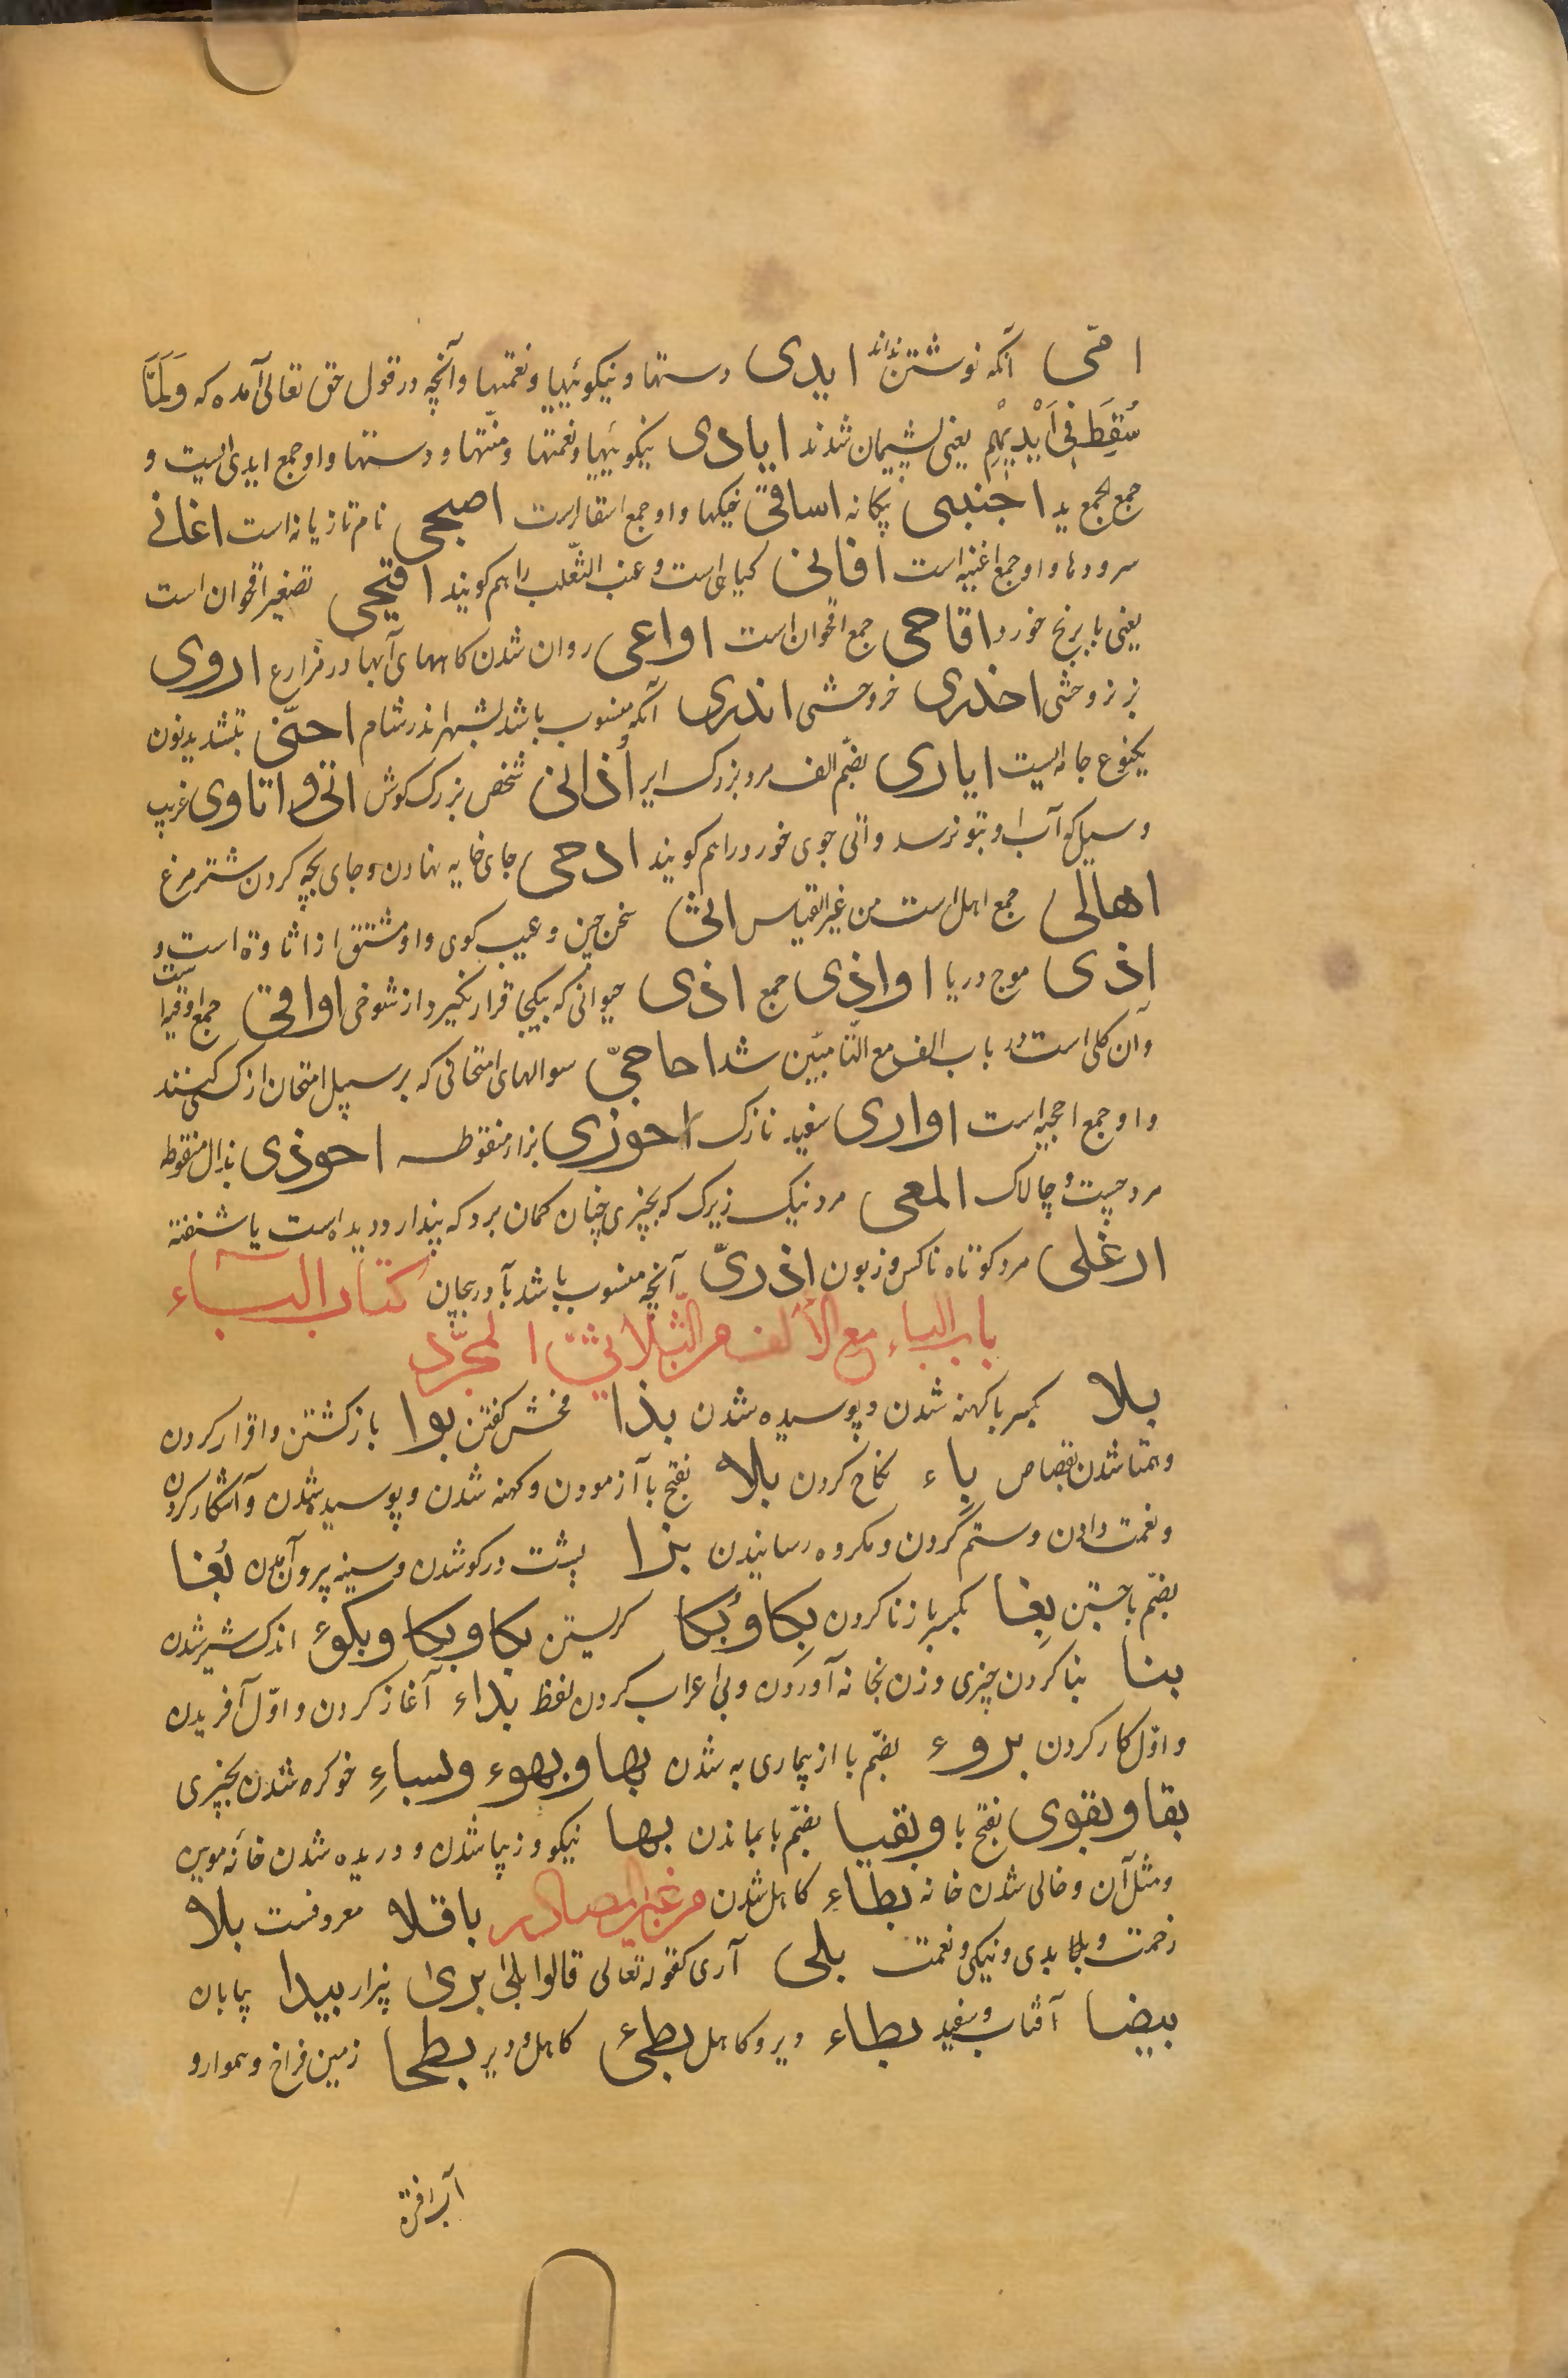 امّی آنکه نوشتن نداند ایدی دستها و نیکوئیها و نعمتها و آنچه در قول حق تعالی آمده که وَلَمَّا
سُقِطَ فِی اَیْدِیْهِمْ یعنی پشیمان شدند ایادی نیکوئیها و نعمتها و منّتها و دستها و او جمع ایدی است و
جمع الجمع ید اجنبی بیکانه اساقی خیکها و او جمع اسقا است اصبحی نام تازیانه است اغانی
سرودها و او جمع اغنیه است افانی کیاهی است و عنب الثّعلب را هم کویند اقیحی تصغیر اقحوان است
یعنی بابونج خورد اقاحی جمع اقحوان است اواعی روان شدن کاههای آبها در مزارع اروی
بز وحشی اخدری خر وحشی اندری آنکه منسوب باشد بشهر اندر شام احنّی بتشدید نون
یکنوع جامه ایست ایاری بضّم الف مرد بزرک ایر اُذانی شخص بزرک کوش اتی و اتاوی غریب
و سیل که آب او بتو نرسد و اتی جوی خورد را هم کویند ادحی جای خایه نهادن و جای بچه کردن شتر مرغ
اهالی جمع اهل است من غیر القیاس اثی سخن چین و عیب کوی و او مشتق از اثاوة است و
اِذی موج دریا اواذی جمع اذی حیوانی که بیکجا قرار نکیرد از شوخی اواقی جمع اوقیه است
و آن کلی است در باب الف مع التا مبّین شد احاجیّ سوالهای امتحانی که بر سبیل امتحان از کسی کنند
و او جمع احجیه است اواری سفید نازک احوزی بزار منقوطه احوذی بذال منقوطه
مرد چست و چالاک المعی مرد نیک زیرک که بچیزی چنان کمان برد که پندارد دیده است یا شنفته
ارغلی مرد کوتاه ناکس و زبون اذریّ آنچه منسوب باشد بآذربیجان کتاب الباء
باب الباء مع الألف من الثّلاثیّ المجرّد
بلا بکسر با کهنه شدن و پوسیده شدن بذا فحش کفتن بوا باز کشتن و اقرار کردن
و همتا شدن بقصاص باء نکاح کردن بلا بفتح با آزمودن و کهنه شدن و پوسیده شدن و آشکار کردن
و نعمت دادن و ستم کردن و مکروه رسانیدن بزا پشت در کو شدن و سینه بیرون آمدن بُغا
بضّم با جستن بِغا بکسر با زنا کردن بِکا و بُکا کریستن بکا و بکا و بکوء اندک شیر شدن
بنا بنا کردن چیزی و زن بخانه آوردن و بی اعراب کردن لفظ بداء آغاز کردن و اوّل آفریدن
و اوّل کار کردن بروء بضّم با از بیماری به شدن بها و بهوء و بساء خو کره شدن بچیزی
بقا و بقوی بفتح با و بقیا بضّم با بماندن بها نیکو و زیبا شدن و دریده شدن خانه موین
و مثل آن و خالی شدن خانه بطاء کاهل شدن من غیر المصادر باقلا معروفست بلا
زحمت و بلا بدی و نیکی و نعمت بلی آری کقوله تعالی قالوا بلی بری بیزار بیدا بیابان
بیضا آفتاب و سفید بطاء دیر و کاهل بطیء کاهل و دیر بطحا زمین فراخ و هموار و